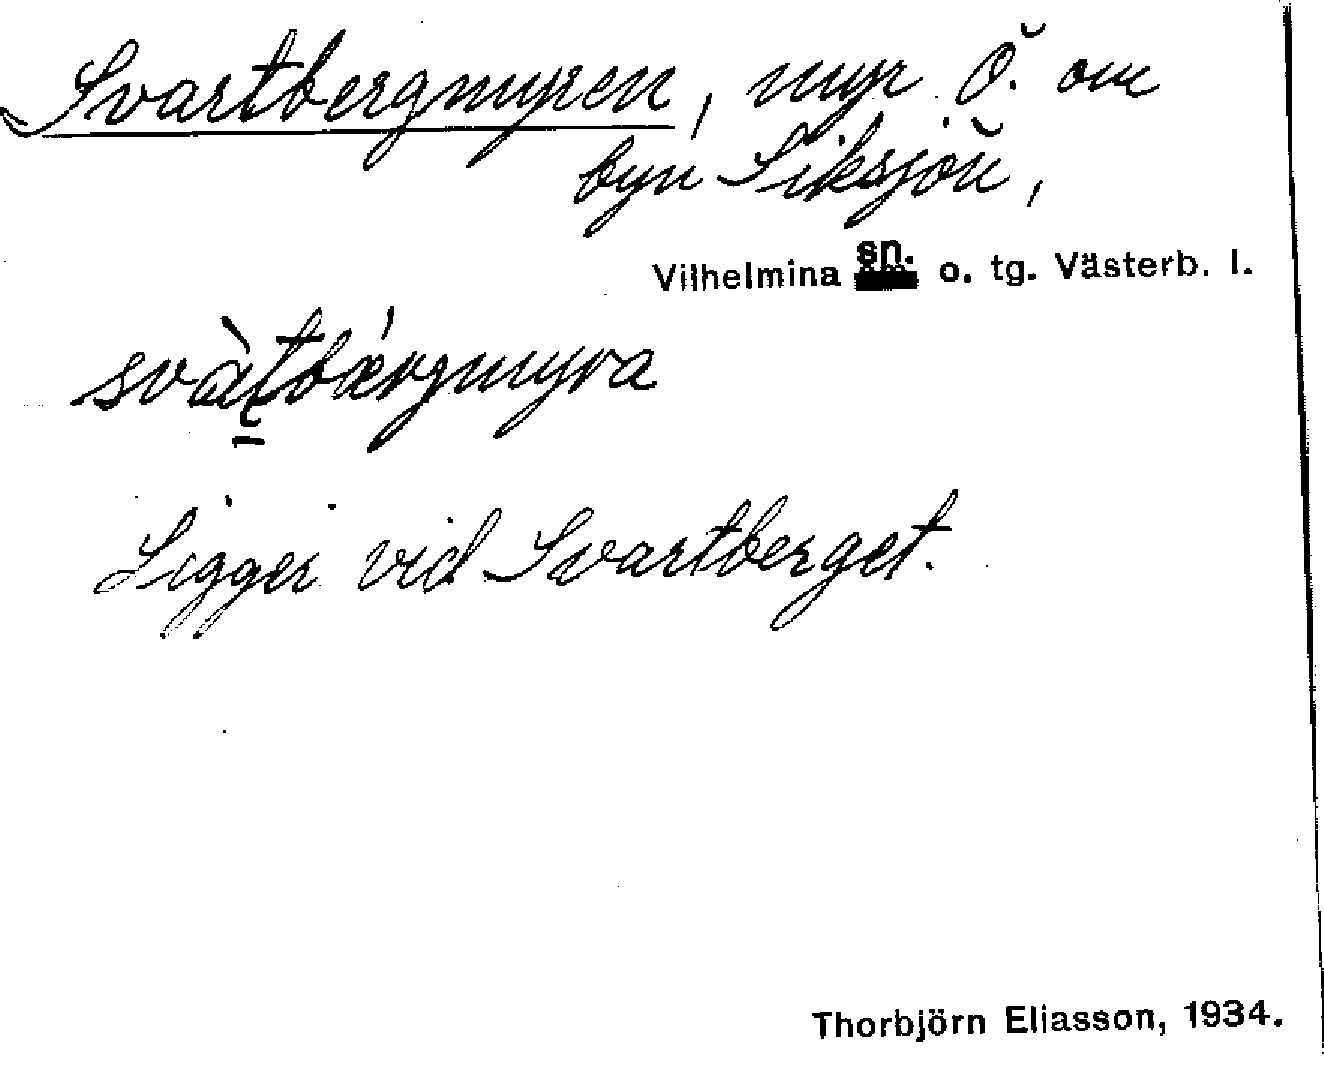 Svartbergmyren, myr Ö. om
byn Siksjön,
Vilhelmina sn. o. tg. Västerb. l.
svàt̠bǽrgmyra
Ligger vid Svartberget.
Thorbjörn Eliasson, 1934.